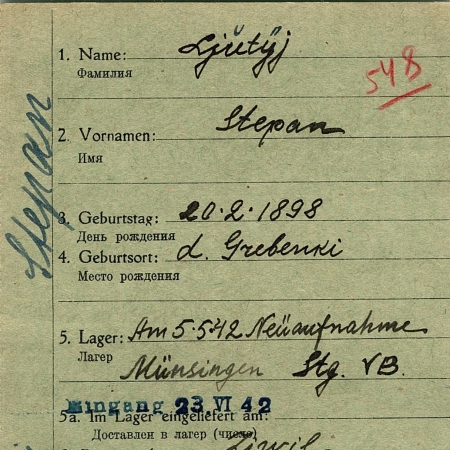 1. Name: Ljŭtŭj
Фамилия
548
2. Vornamen: Stepan
Имя
Stepan
3. Geburtstag: 20.2.1898
День рождения
4. Geburtsort: d. Grebenki
Место рождения
5. Lager: Am 5.5.42 Neŭaufnahme
Лагер
Münsingen Stg. VB.
Eingang 23. VI 42
5a. Im Lager eingeliefert am:
Доставлен в лагер (число)
Ziwil